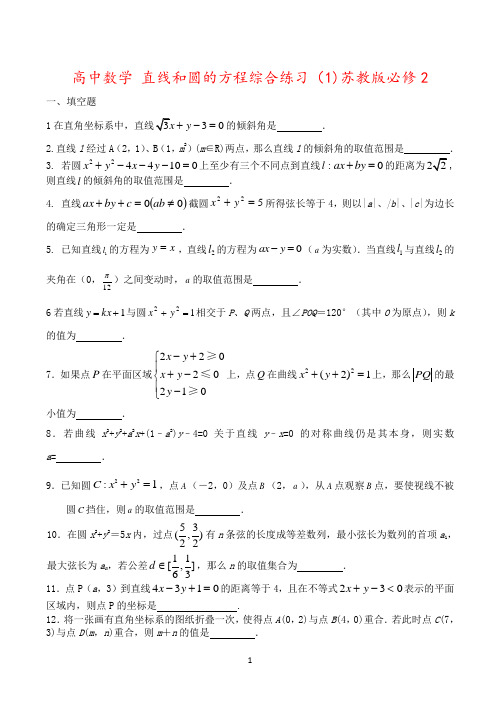 高中数学 直线和圆的方程综合练习 (1)苏教版必修2
一、填空题
1在直角坐标系中,直线√3x+y−3=0的倾斜角是 .
2.直线l经过A(2,1)、B(1,m²)(m∈R)两点,那么直线l的倾斜角的取值范围是 .
3. 若圆x²+y²−4x−4y−10=0上至少有三个不同点到直线l:ax+by=0的距离为2√2,
则直线l的倾斜角的取值范围是 .
4. 直线ax+by+c=0(ab≠0)截圆x²+y²=5所得弦长等于4,则以|a|、|b|、|c|为边长
的确定三角形一定是 .
5. 已知直线l₁的方程为y=x,直线l₂的方程为ax−y=0(a为实数).当直线l₁与直线l₂的
夹角在(0,π/12)之间变动时,a的取值范围是 .
6若直线y=kx+1与圆x²+y²=1相交于P、Q两点,且∠POQ=120°(其中O为原点),则k
的值为 .
7.如果点P在平面区域{2x−y+2≥0 x+y−2≤0 2y−1≥0 上,点Q在曲线x²+(y+2)²=1上,那么|PQ|的最
小值为 .
8.若曲线x²+y²+a²x+(1﹣a²)y﹣4=0关于直线y﹣x=0的对称曲线仍是其本身,则实数
a= .
9.已知圆C:x²+y²=1,点A(-2,0)及点B(2,a),从A点观察B点,要使视线不被
圆C挡住,则a的取值范围是 .
10.在圆x²+y²=5x内,过点(5/2,3/2)有n条弦的长度成等差数列,最小弦长为数列的首项a₁,
最大弦长为aₙ,若公差d∈[1/6,1/3],那么n的取值集合为 .
11.点P(a,3)到直线4x−3y+1=0的距离等于4,且在不等式2x+y−3<0表示的平面
区域内,则点P的坐标是 .
12.将一张画有直角坐标系的图纸折叠一次,使得点A(0,2)与点B(4,0)重合.若此时点C(7,
3)与点D(m,n)重合,则m+n的值是 .
1